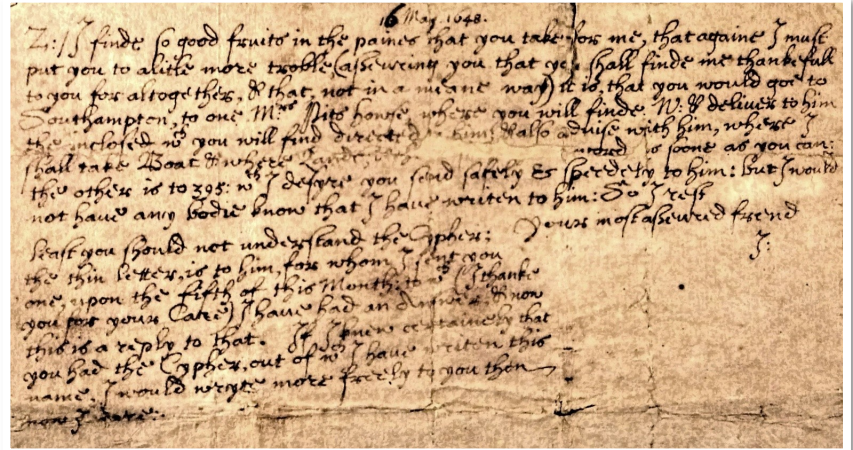 16 May. 1648.
Z:// I finde so good fruits in the paines that you take for me, that againe I must
put you to a litle more troble (assewring you that ye shall finde me thankefull
to you for altogether, & that, not in a meane way) it is, that you would goe to
Southampton, to one Mrs Pits house, where you will finde: W: & deliver to him
the inclosed wch you will find directed to him; & also advise with him, where I
shall take Boat & where as soone as you can:
the other is to 395: wch I desyre you send safely & speedely to him: but I would
not have any bodie know that I have writen to him: So I rest
Your most assewred frend
J:
Least you should not understand the Cypher:
the thin letter, is to him, for whom I sent you
one, upon the fifth of this Month: to wch (I thanke
you for your Care) I have had an Answer, & now
this is a reply to that. If I knew certainely that
you had the Cypher, out of wch I have writen this
name, I would wryte more freely to you then
now I dare.